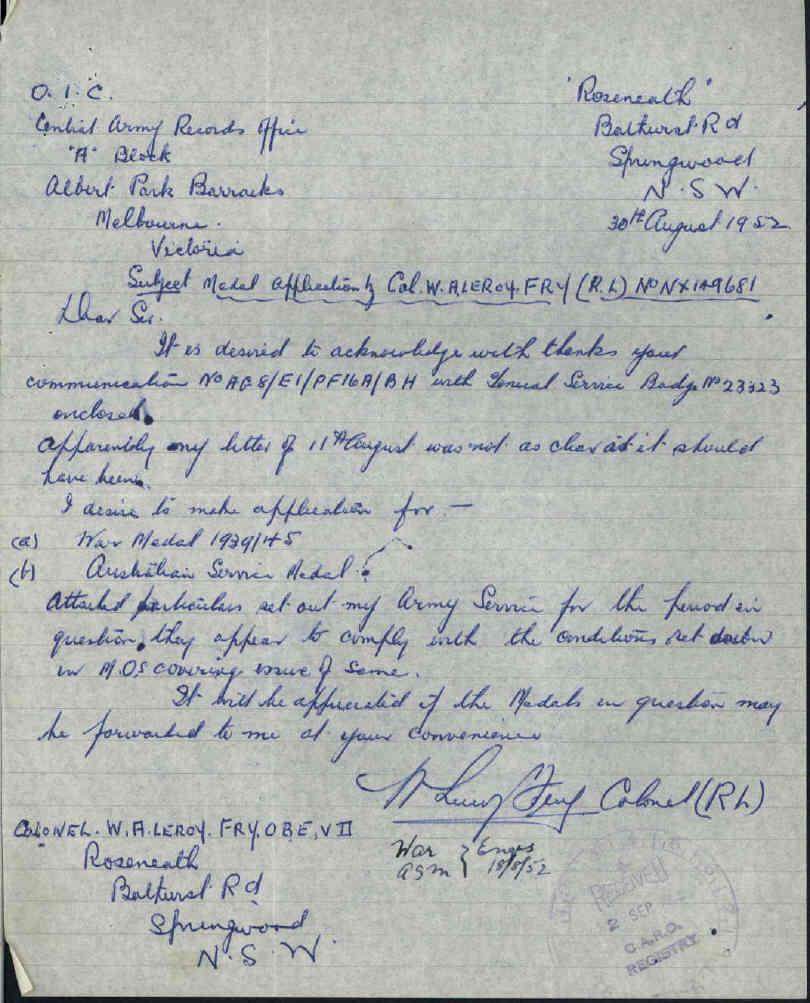 O.I.C.
Central Army Records Office
"A" Block
Albert Park Barracks
Melbourne.
Victoria
"Roseneath"
Bathurst Rd
Springwood
N.S.W.
30th August 1952
Subject Medal Application of Col. W.A. LEROY. FRY (R.L) No NX149681
Dear Sir.
It is desired to acknowledge with thanks your
communication No AG8/E1/PF16A/BH with General Service Badge No 23323
enclosed.
Apparently my letter of 11th August was not as clear as it should
have been.
I desire to make application for :—
(a) War Medal 1939/45
(b) Australian Service Medal.
Attached particulars set out my Army Service for the period in
question, they appear to comply with the conditions set down
in M.O.S covering issue of same.
It will be appreciated if the Medals in question may
be forwarded to me at your convenience
W Leroy Fry Colonel (RL)
COLONEL. W.A. LEROY. FRY. OBE, VD
Roseneath
Bathurst Rd
Springwood
N.S.W.
War } Engrs
ASM } 18/8/52
RECEIVED
2 SEP
C.A.R.O.
REGISTRY